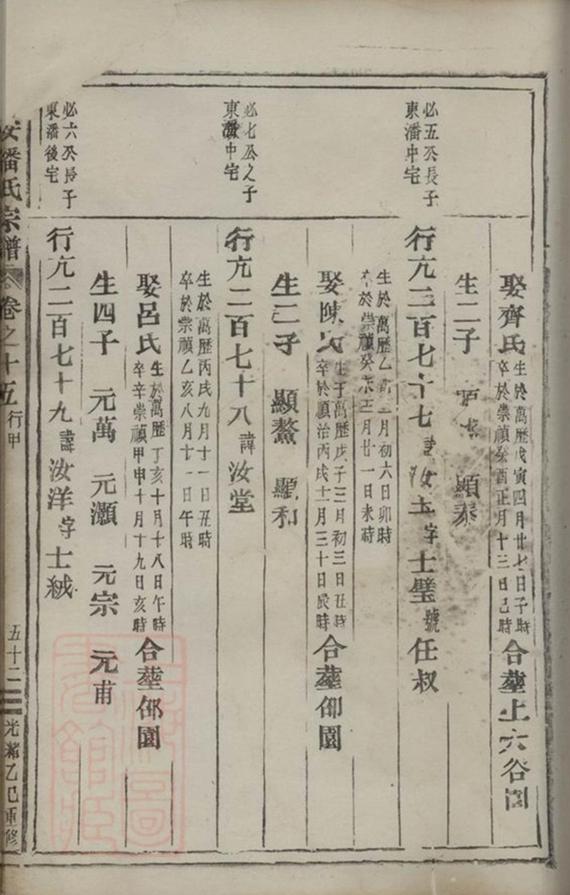 娶齊氏
生於萬歷戊寅四月廿七日子時
卒於崇禎癸酉正月十三日己時
合塟上六谷園
生二子 顯泰
必五公長子
東潘中宅
行亢二百七十七諱汝玉字士璧號任叔
生於萬歷乙 月初六日卯時
卒於崇禎癸未三月廿一日未時
娶陳氏
生于萬歷戊子三月初三日丑時
卒於順治丙戌十二月三十日辰時
合塟仰園
生二子 顯鰲 顯和
必七公之子
東潘中宅
行亢二百七十八諱汝堂
生於萬歷丙戌九月十一日丑時
卒於崇禎乙亥八月十一日午時
娶呂氏
生於萬歷丁亥十月十八日午時
卒辛崇禎甲申十月十九日亥時
合塟仰園
生四子 元萬 元灝 元宗 元甫
必六公長子
東潘後宅
行亢二百七十九諱汝洋字士絨
潘氏宗譜 卷之十五 行甲 五十二 光緒乙巳重修